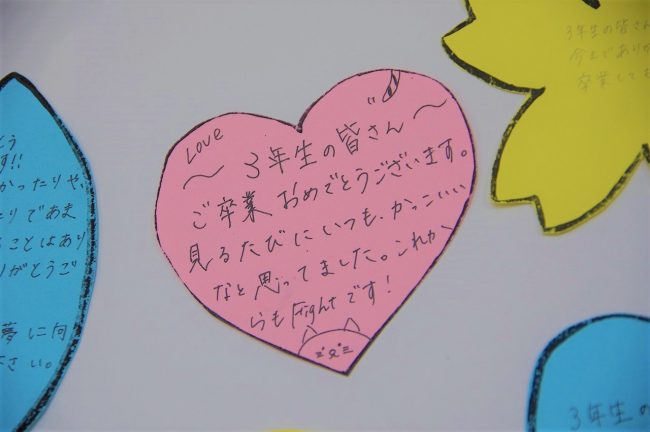 Love
〜3年生の皆さん〜
ご卒業おめでとうございます。
見るたびにいつも、かっこいい
なと思ってました。これか
らもFightです!
とう
す!!
かったりや、
とりであま
ることはあり
りがとうご
夢に向
さい。
3年生の皆さん
今まであり
卒業しても
3年生の